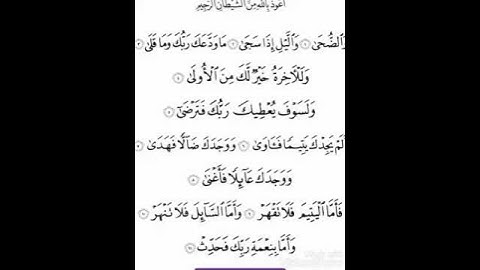 أعوذ بالله من الشيطان الرجيم
وَٱلضُّحَىٰ ۝ وَٱلَّيۡلِ إِذَا سَجَىٰ ۝ مَا وَدَّعَكَ رَبُّكَ وَمَا قَلَىٰ ۝
وَلَلۡأٓخِرَةُ خَيۡرٞ لَّكَ مِنَ ٱلۡأُولَىٰ ۝
وَلَسَوۡفَ يُعۡطِيكَ رَبُّكَ فَتَرۡضَىٰٓ ۝
أَلَمۡ يَجِدۡكَ يَتِيمٗا فَـَٔاوَىٰ ۝ وَوَجَدَكَ ضَآلّٗا فَهَدَىٰ ۝
وَوَجَدَكَ عَآئِلٗا فَأَغۡنَىٰ ۝
فَأَمَّا ٱلۡيَتِيمَ فَلَا تَقۡهَرۡ ۝ وَأَمَّا ٱلسَّآئِلَ فَلَا تَنۡهَرۡ ۝
وَأَمَّا بِنِعۡمَةِ رَبِّكَ فَحَدِّثۡ ۝